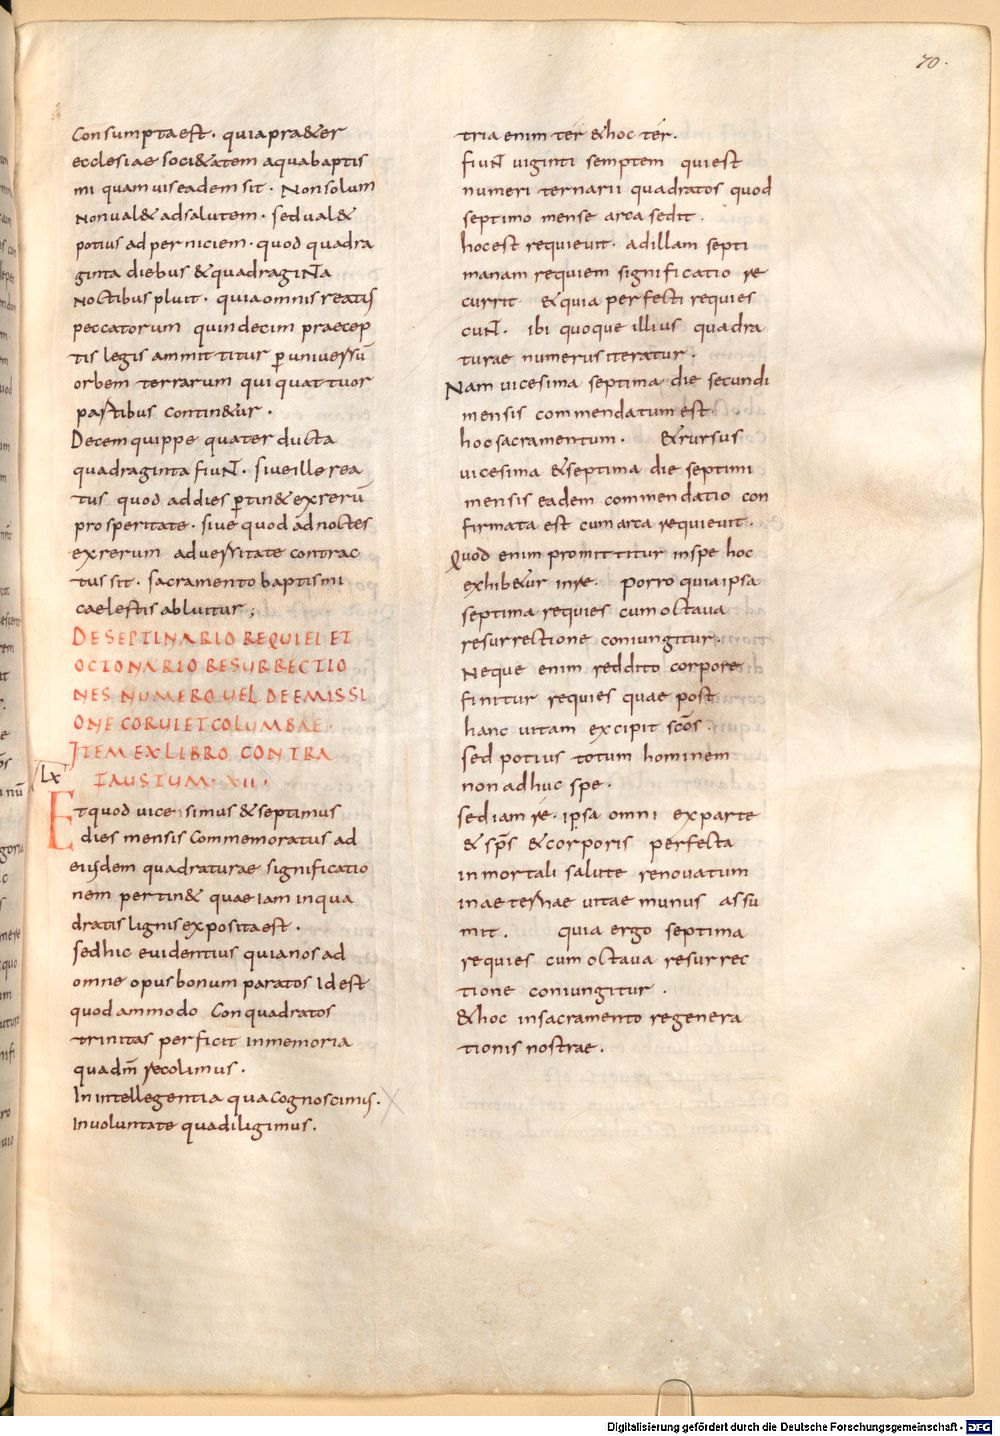 70.
Consumpta est. quia pra&er
ecclesiae soci&atem aqua baptis
mi quam uis eadem sit. Non solum
non ual& ad salutem. sed ual&
potius ad perniciem. quod quadra
ginta diebus & quadraginta
noctibus pluit. quia omnis reatus
peccatorum quindecim praecep
tis legis ammittitur p uniuersū
orbem terrarum qui quattuor
partibus contin&ur.
Decem quippe quater ducta
quadraginta fiunt. siue ille rea
tus quod ad dies ptin& ex rerū
prosperitate. siue quod ad noctes
ex rerum aduersitate contrac
tus sit. sacramento baptismi
caelestis abluitur;
DE SEPTINARIO REQUIEI ET
OCTONARIO RESURRECTIO
NES NUMERO UEL DE EMISSI
ONE CORUI ET COLUMBAE.
ITEM EX LIBRO CONTRA
FAUSTUM. XII.
Lx
Et quod uicesimus & septimus
dies mensis Commemoratus ad
eiusdem quadraturae significatio
nem pertin& quae iam in qua
dratis lignis exposita est.
sed hic euidentius quia nos ad
omne opus bonum paratos Id est
quodammodo Conquadratos
trinitas perficit in memoria
qua dm̄ recolimus.
In intellegentia qua Cognoscimus.
In uoluntate qua diligimus.
tria enim ter & hoc ter.
fiunt uiginti semptem qui est
numeri ternarii quadratos quod
septimo mense arca sedit.
hoc est requieuit. ad illam septi
manam requiem significatio re
currit. & quia perfecti requies
cunt. ibi quoque illius quadra
turae numerus iteratur.
Nam uicesima septima die secundi
mensis commendatum est
hoc sacramentum. & rursus
uicesima & septima die septimi
mensis eadem commendatio con
firmata est cum arca requieuit.
Quod enim promittitur in spe hoc
exhib&ur in re. porro quia ipsa
septima requies cum octaua
resurrectione coniungitur.
Neque enim reddito corpore
finitur requies quae post
hanc uitam excipit scōs.
sed potius totum hominem
non adhuc spe.
sed iam re. ipsa omni ex parte
& sp̄s & corporis perfecta
inmortali salute renouatum
in aeternae uitae munus assu
mit. quia ergo septima
requies cum octaua resurrec
tione coniungitur.
& hoc in sacramento regenera
tionis nostrae.
Digitalisierung gefördert durch die Deutsche Forschungsgemeinschaft - DFG